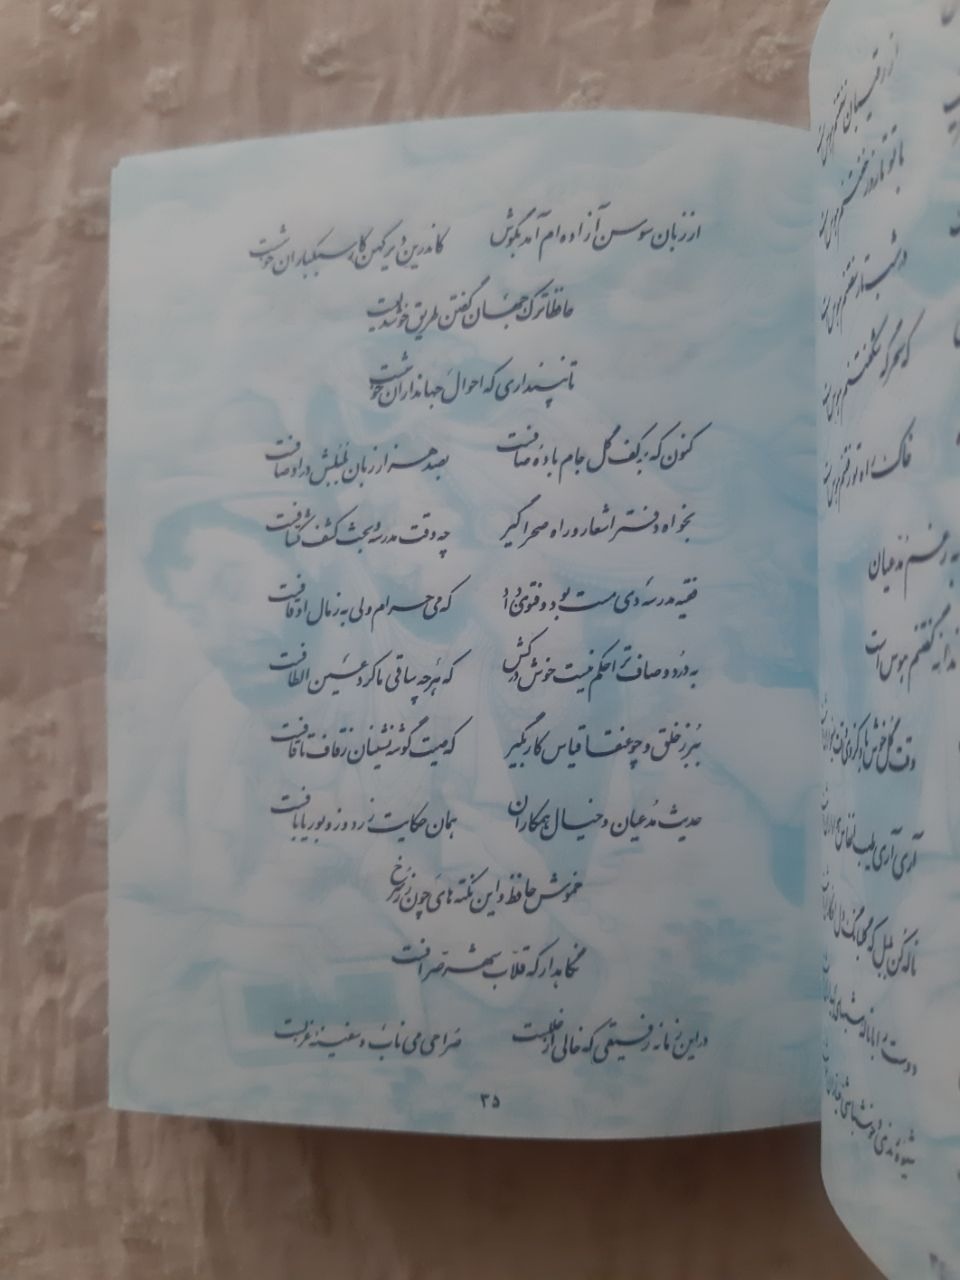 از زبان سوسن آزاده ام آمد بگوش کاندرین دیر کهن کار سبکباران خوشست
حافظا ترک جهان گفتن طریق خوشدلیست
تا نپنداری که احوال جهانداران خوشست
کنون که بر کف گل جام باده صافست بصد هزار زبان بلبلش در اوصافست
بخواه دفتر اشعار و راه صحرا گیر چه وقت مدرسه و بحث کشف کشافست
فقیه مدرسه دی مست بود و فتوی داد که می حرام ولی به ز مال اوقافست
به درد و صاف ترا حکم نیست خوش درکش که هرچه ساقی ما کرد عین الطافست
ببر ز خلق و چو عنقا قیاس کار بگیر که صیت گوشه نشینان ز قاف تا قافست
حدیث مدعیان و خیال همکاران همان حکایت زردوز و بوریابافست
خموش حافظ و این نکته های چون زر سرخ
نگاهدار که قلاب شهر صرافست
در این زمانه رفیقی که خالی از خللست صراحی می ناب و سفینه غزلست
۳۵
از رقیبان نهفتنم هوس است
با تو تا روز خفتنم هوس است
در شب تار سفتنم هوس است
که سحرگه شکفتنم هوس است
خاک راه تو رفتنم هوس است
مدعیان
گفتنم هوس است